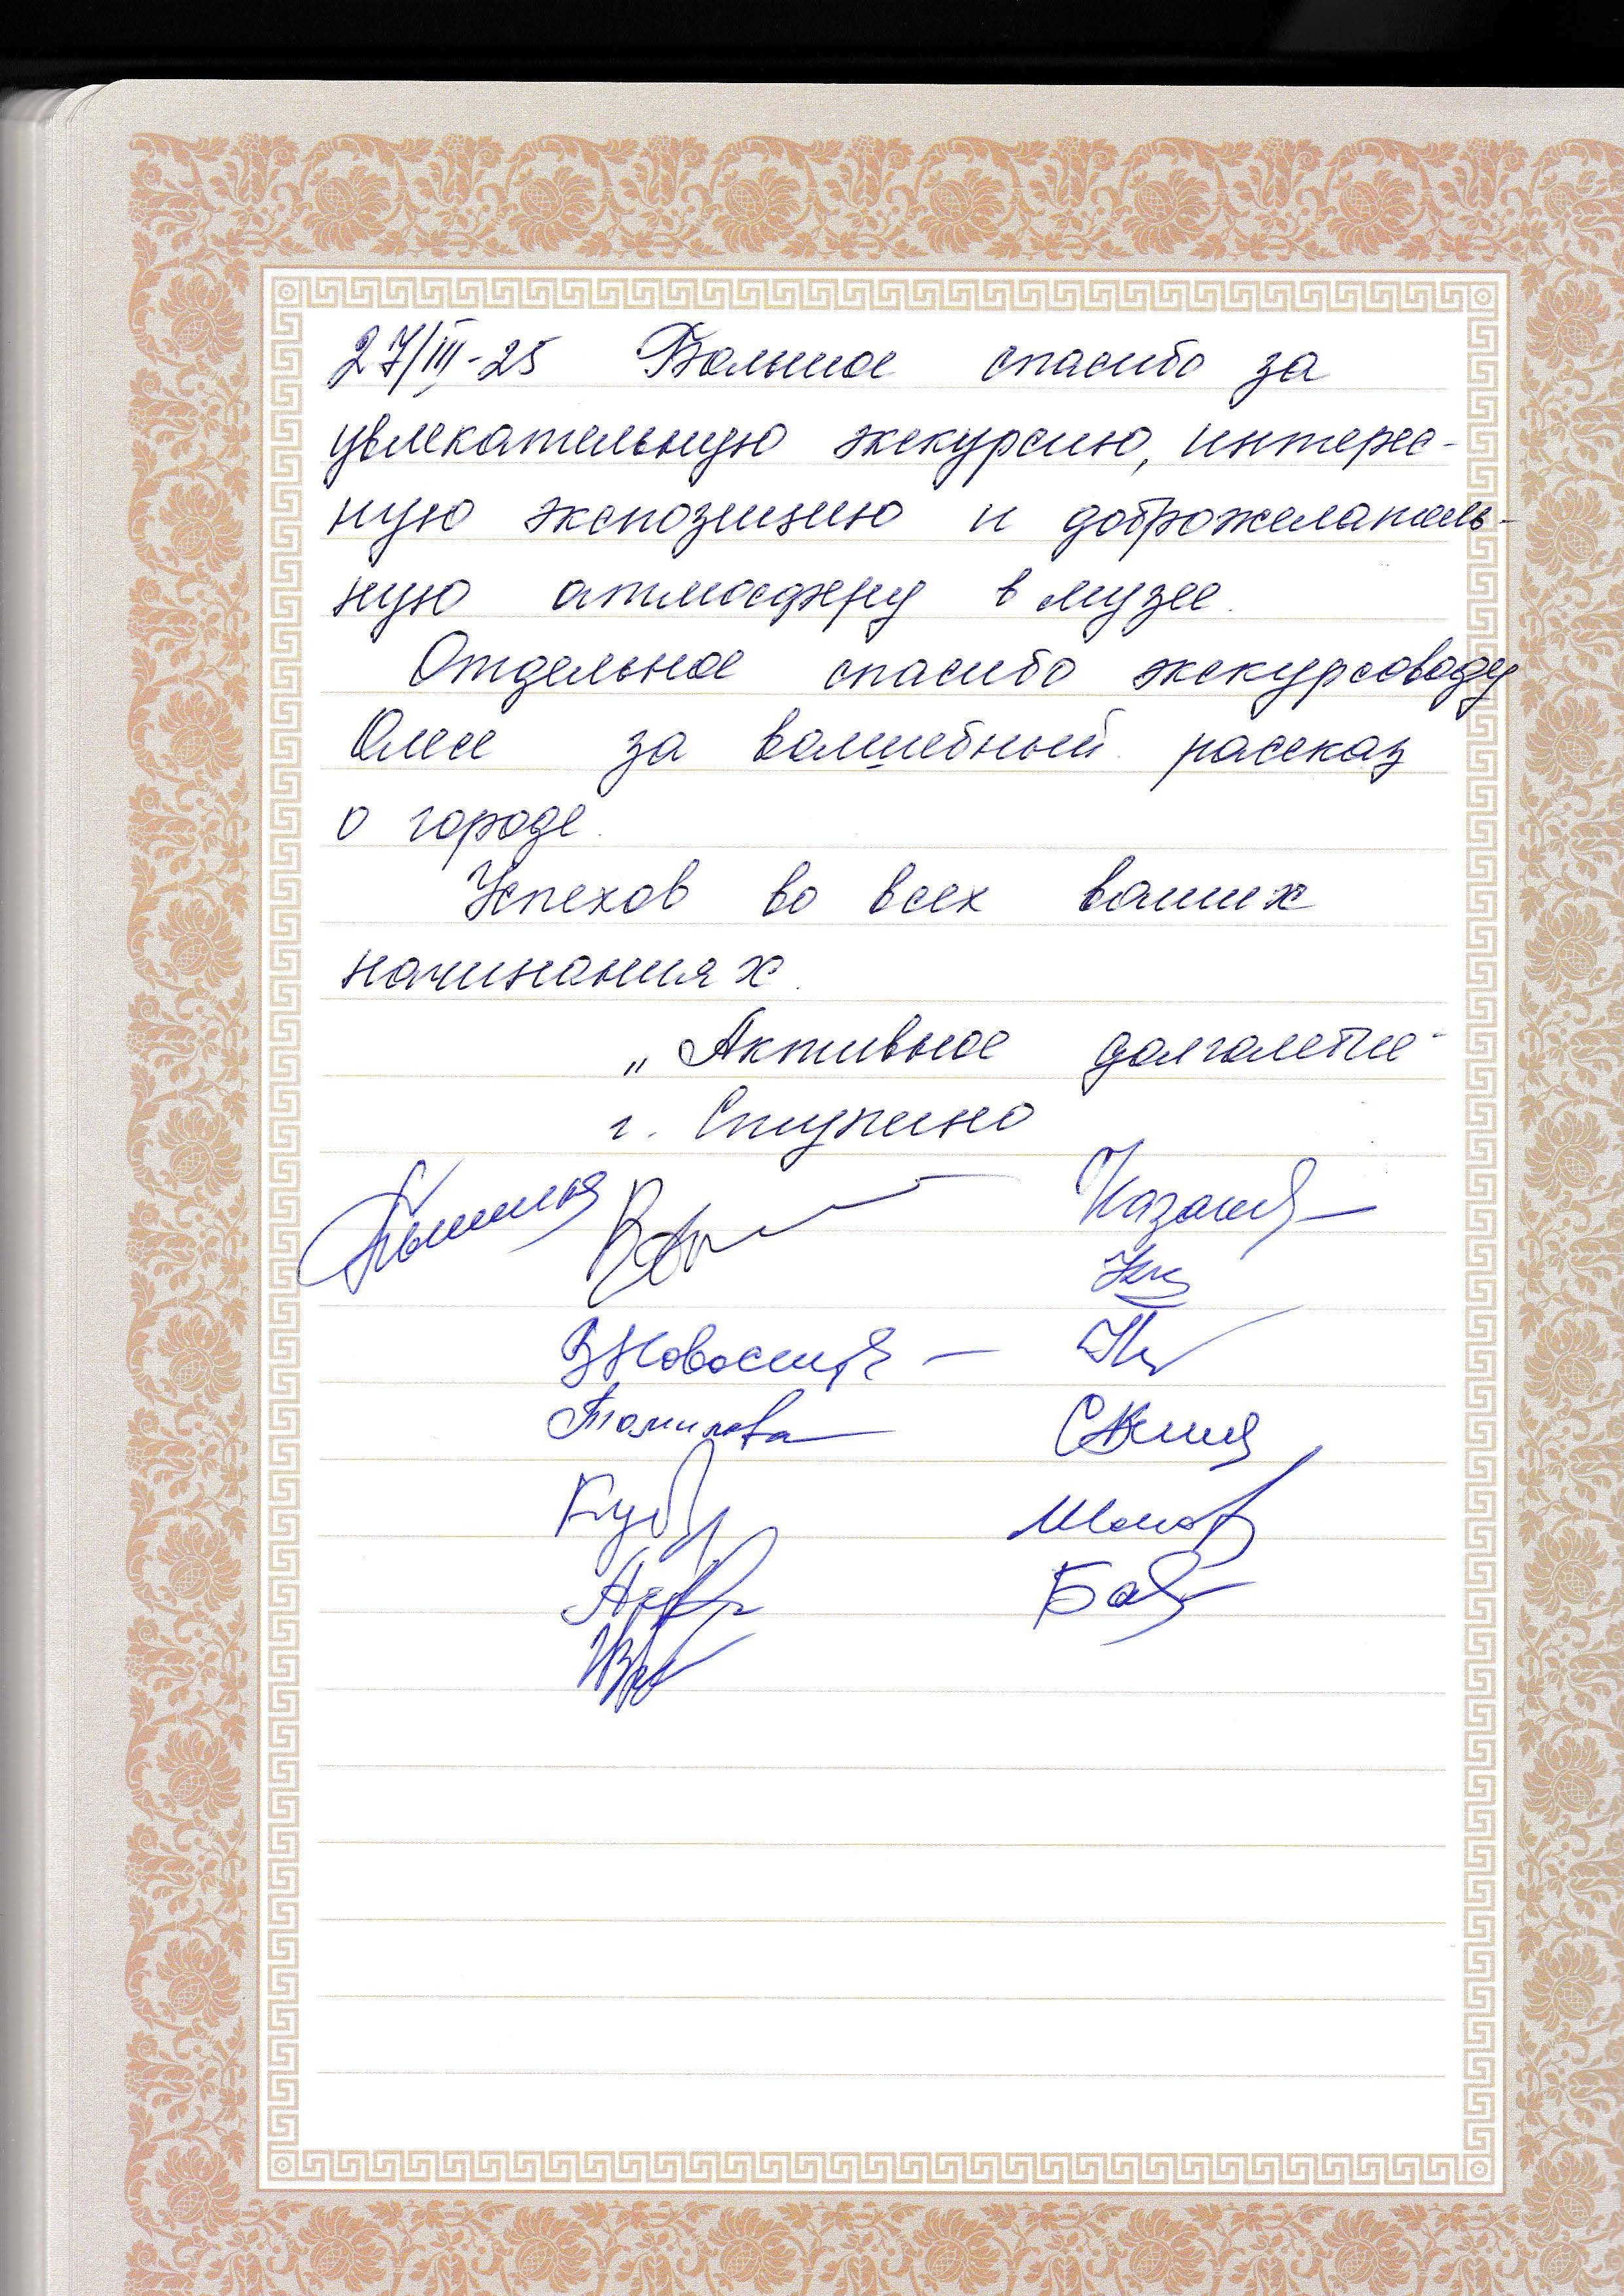 27/III-25 Большое спасибо за
увлекательную экскурсию, интерес-
ную экспозицию и доброжелатель-
ную атмосферу в музее.
Отдельное спасибо экскурсоводу
Олесе за волшебный рассказ
о городе.
Успехов во всех ваших
начинаниях.
„Активное долголетие"
г. Ступино
Томилова